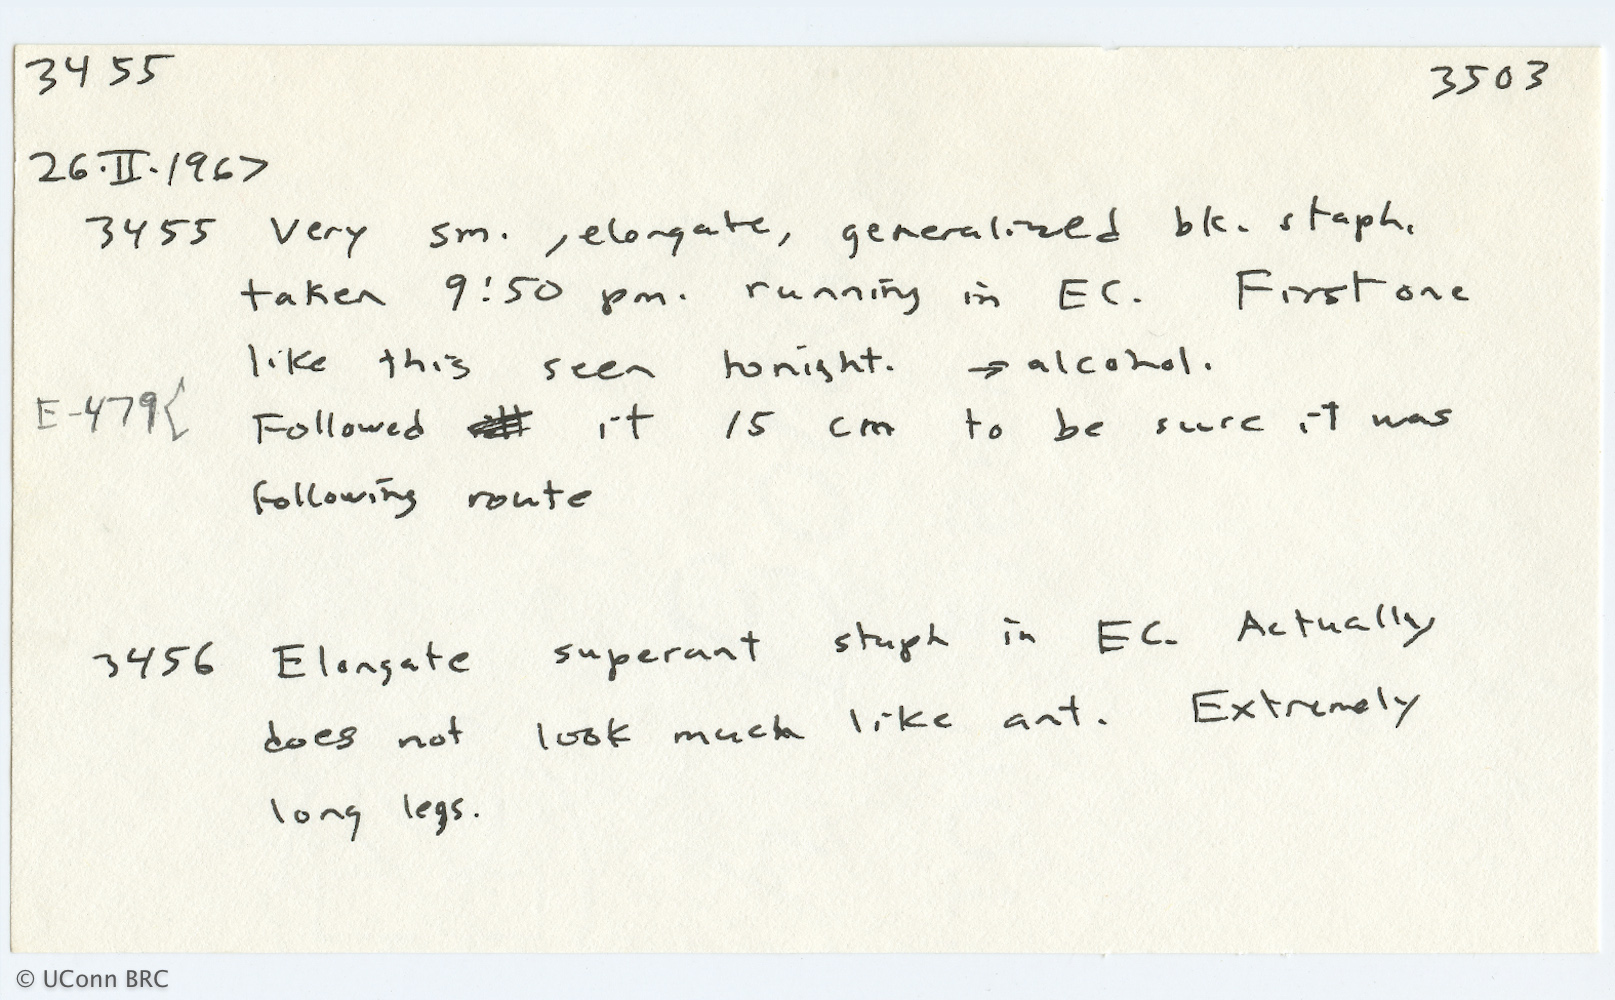 3455 3503
26.II.1967
3455 Very sm., elongate, generalized bk. staph.
taken 9:50 pm. running in EC. First one
like this seen tonight. → alcohol.
E-479{ Followed it 15 cm to be sure it was
following route
3456 Elongate superant staph in EC. Actually
does not look much like ant. Extremely
long legs.
© UConn BRC